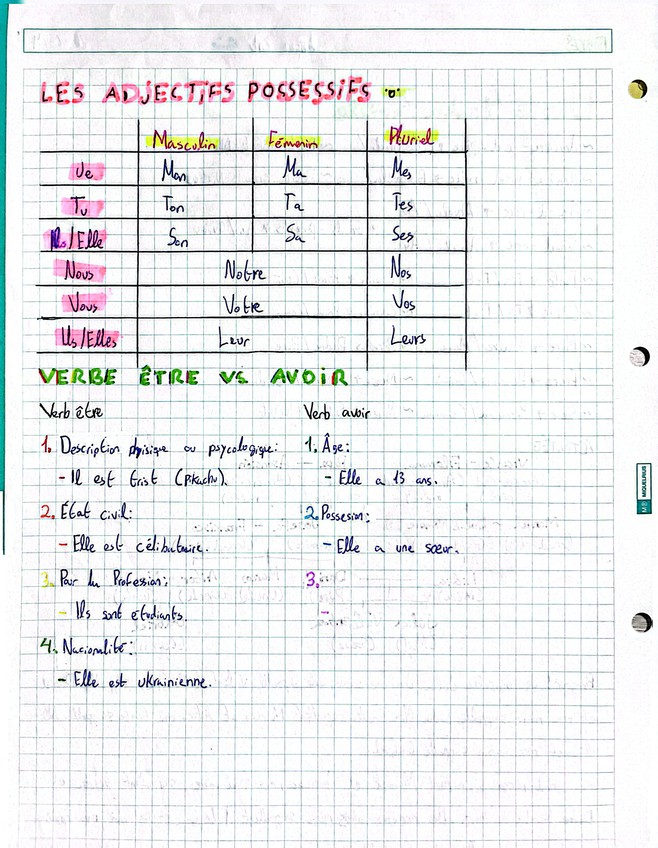 LES ADJECTIFS POSSESSIFS
Masculin Fémenin Pluriel
Je Mon Ma Mes
Tu Ton Ta Tes
Ils/Elle Son Sa Ses
Nous Notre Nos
Vous Votre Vos
Ils/Elles Leur Leurs
VERBE ÊTRE VS AVOIR
Verb être Verb avoir
1. Description phisique ou psycologique: 1. Âge:
- Il est trist (Pikachu). - Elle a 13 ans.
2. État civil: 2. Possesion:
- Elle est célibataire. - Elle a une sœur.
3. Pour la Profession: 3.
- Ils sont étudiants. -
4. Nacionalité:
- Elle est ukrainienne.
MIQUELRIUS